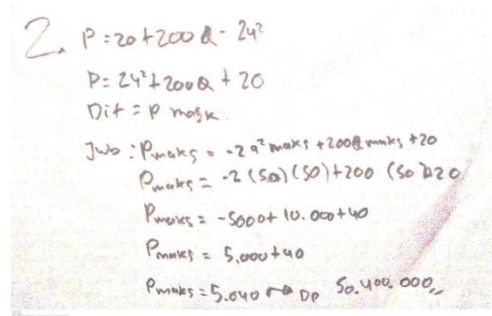 2. P = 20 + 200 Q - 2q²
P = 2q² + 200Q + 20
Dit = P mask.
Jwb : Pmaks = -2q² maks + 200Q maks + 20
Pmaks = -2 (50) (50) + 200 (50) + 20
Pmaks = -5000 + 10.000 + 40
Pmaks = 5.000 + 40
Pmaks = 5.040 → Dp 50.400.000,,